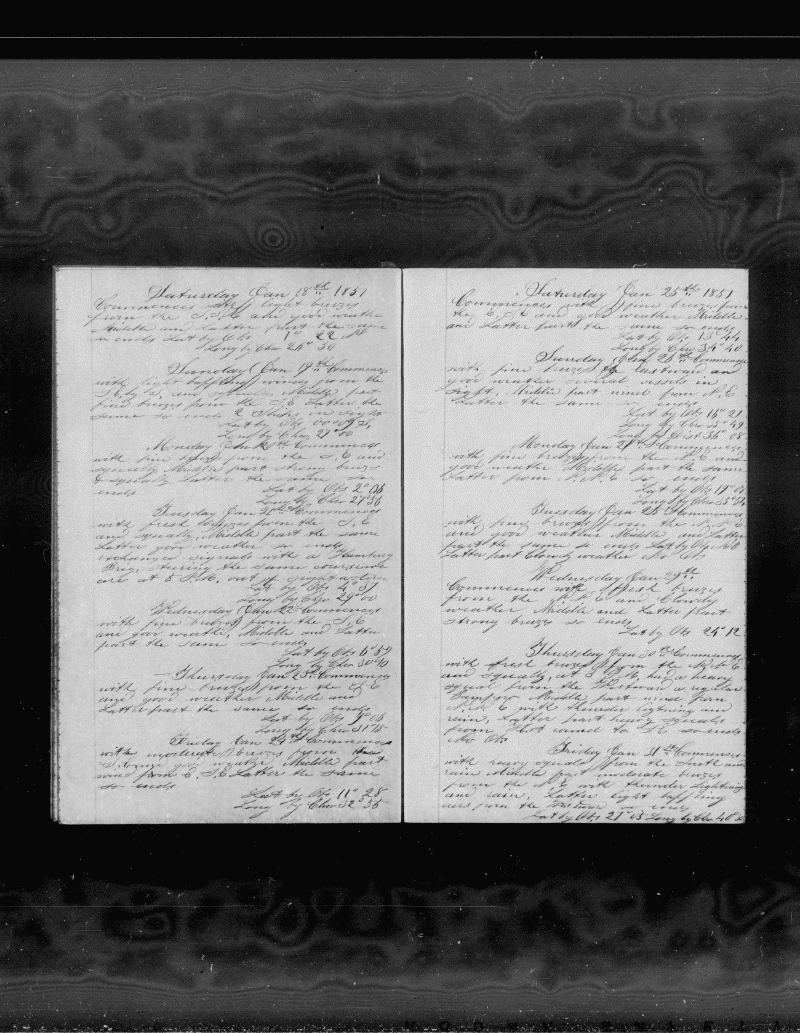 Saturday Jan 18th 1851
Commences with light breezes
from the S, S, E and good weather
Middle and Latter part the same
so ends Lat by Obs 1° 22 N
Long by Chro 25° 30
Sunday Jan 19th Commences
with light baffling winds from the
S, E by S, and squally, Middle part
fine breezes from the S, E Latter the
same so ends 2 Ships in sight
Lat by Obs 00° 09
Long by Chro 27° 00
Monday Commences
with fine breezes from the S, E and
squally Middle part strong breezes
& squally Latter the same so
ends Lat by Obs 2° 06
Long by Chro 27° 56
Tuesday Jan 21st Commences
with fresh breezes from the S, E
and squally, Middle part the same
Latter good weather so ends
exchanged signals with a Hamburg
Brig, steering the same course
at 5 P.M. out of sight astern
Lat by Obs 4° 37
Long by Chro 29° 00
Wednesday Jan 22 Commences
with fine breezes from the S, E
and good weather, Middle and Latter
part the same so ends
Lat by Obs 6° 59
Long by Chro 30° 10
Thursday Jan 23d Commences
with fine breezes from the E, S, E
and good weather Middle and
Latter part the same so ends
Lat by Obs 9° 06
Long by Chro 31° 15
Friday Jan 24th Commences
with moderate breezes from the
S, E and good weather, Middle part
wind from E, S, E Latter the same
so ends
Lat by Obs 11° 28
Long by Chro 32° 35
Saturday Jan 25th 1851
Commences with fine breezes from
the E, S, E and good weather Middle
and Latter part the same so ends
Lat by Obs 13° 44
Long by Chro 34° 40
Sunday Jan 26th Commences
with fine breezes to eastward and
good weather several vessels in
sight, Middle part wind from N, E
Latter the same so ends
Lat by Obs 16° 21
Long by Chro 35° 49
Long by Dist 36° 08
Monday Jan 27th Commences
with fine breezes from the N, E and
good weather Middle part the same
Latter from N, N, E so ends
Lat by Obs 19°
Long by Chro
Tuesday Jan 28 Commences
with fine breezes from the N, N, E
and good weather Middle and Latter
part the same so ends Lat by Obs No
Latter part Cloudy weather No Obs
Wednesday Jan 29th
Commences with fresh breezes
from the N, N, E and Cloudy
weather Middle and Latter part
strong breezes so ends
Lat by Obs 24° 12
Thursday Jan 30th Commences
with fresh breezes from the N, N, E
and squally, at 5 P.M. had a heavy
squall from the Westward a regular
Pampero Middle part wind from
N, N, E with thunder lightning and
rain, Latter part heavy squalls
from so ends
No Obs
Friday Jan 31st Commences
with heavy squalls from the South and
rain Middle part moderate breezes
from the N, E with thunder lightning
and rain, Latter light baffling
airs from the Westward so ends
Lat by Obs 27° 03 Long by Chro 40°